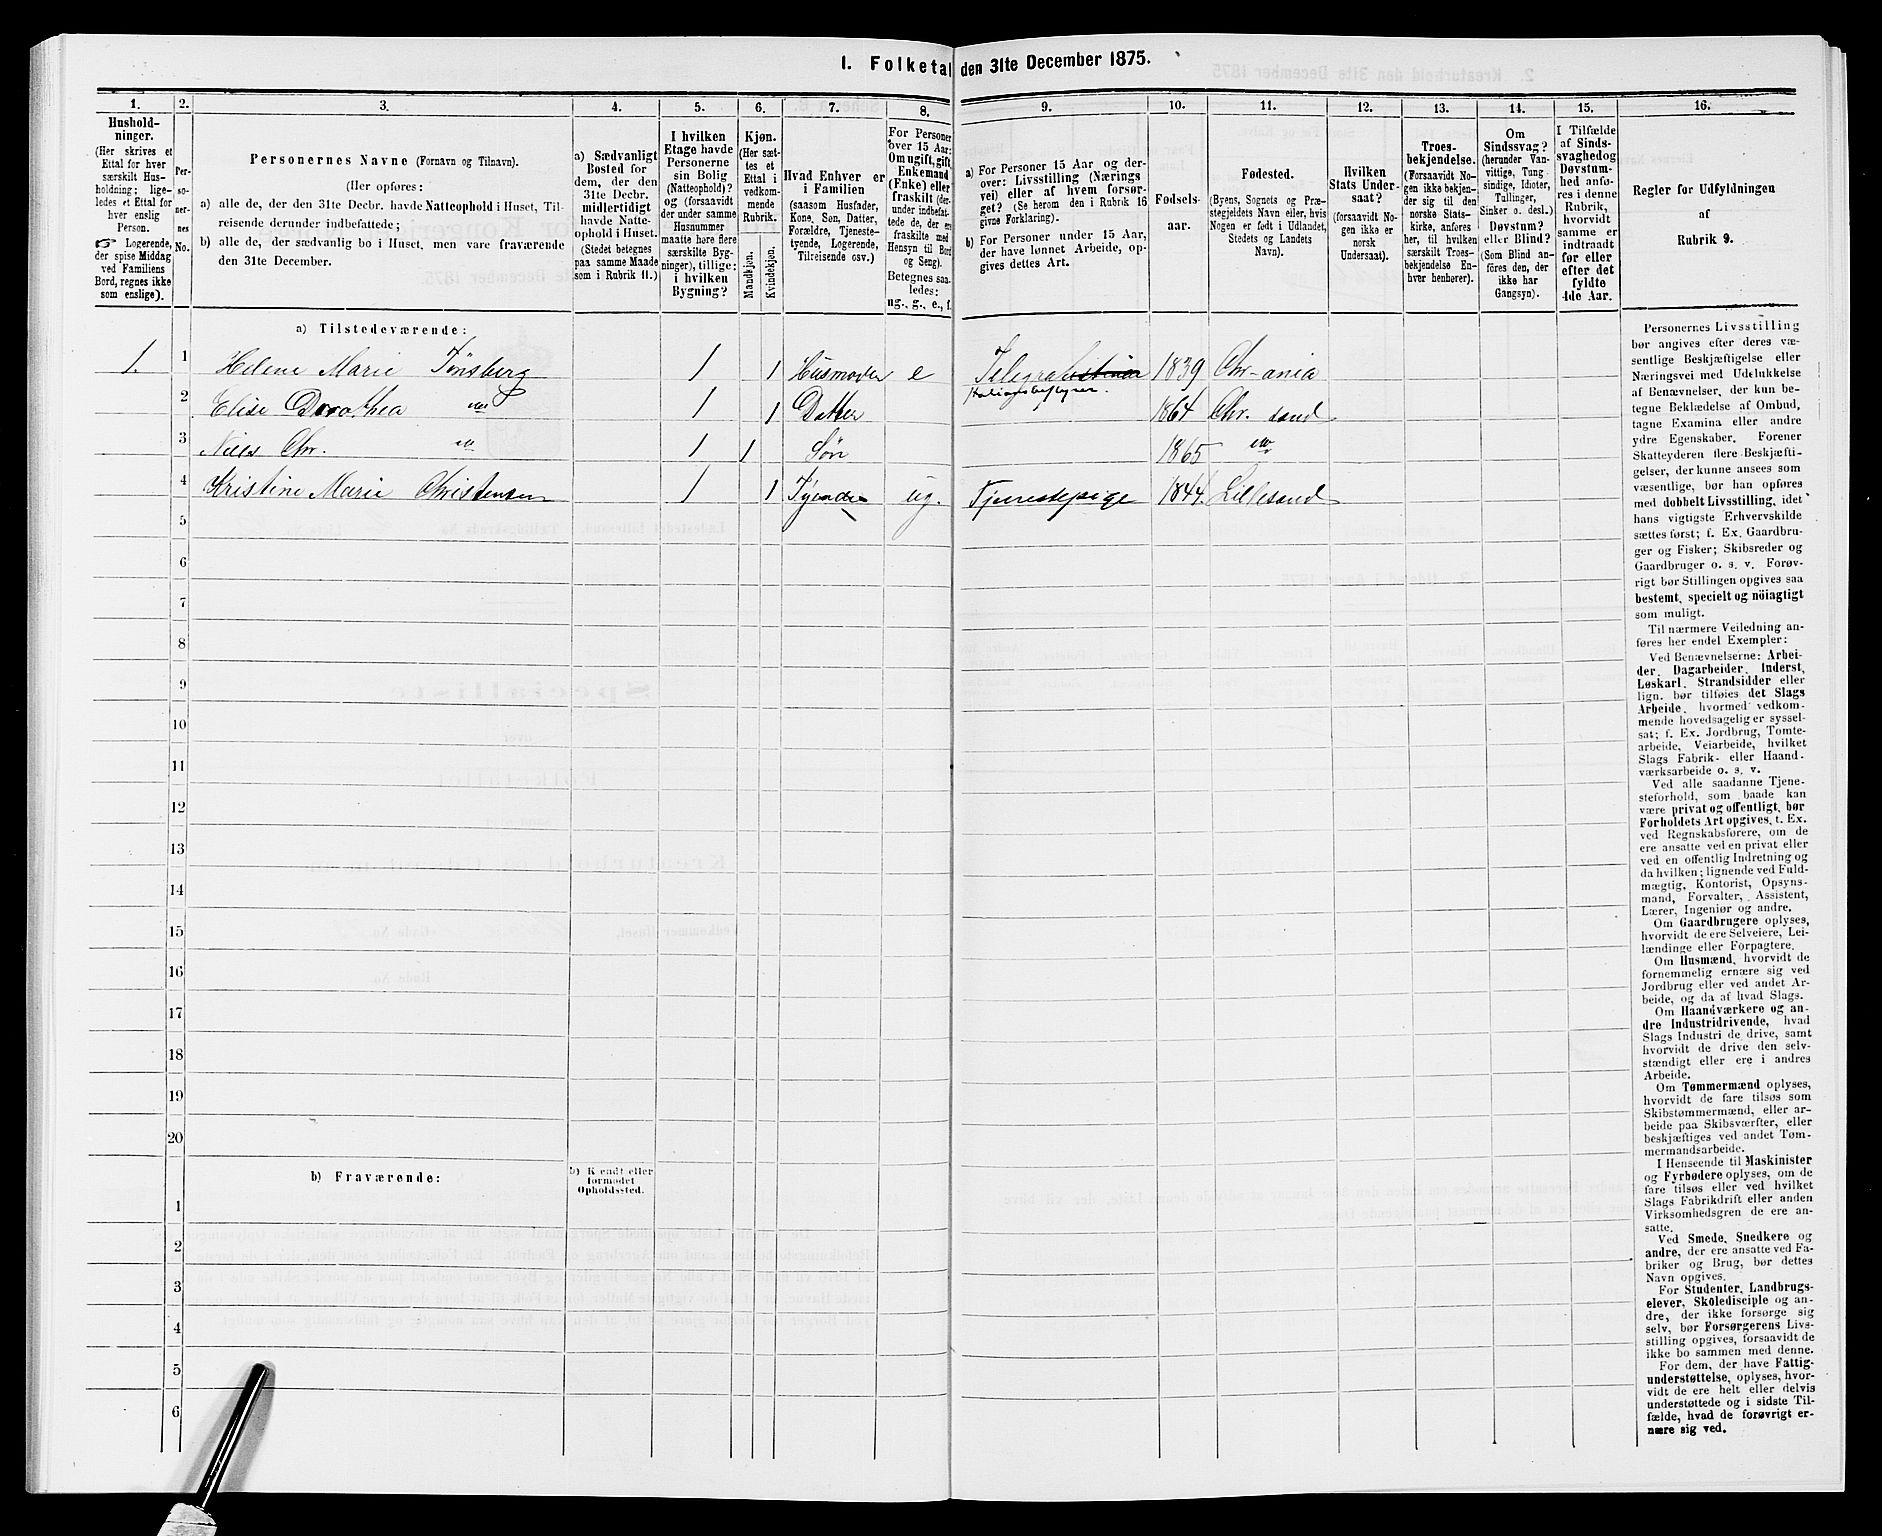 1. Folketal den 31te December 1875.
1. 2. 3. 4. 5. 6. 7. 8. 9. 10. 11. 12. 13. 14. 15. 16.
Hushold-
ninger.
(Her skrives et
Ettal for hver
særskilt Hus-
holdning; lige-
ledes et Ettal for
hver enslig
Person.
☞ Logerende,
der spise Middag
ved Familiens
Bord, regnes ikke
som enslige).
Per-
so-
ner-
nes
No.
Personernes Navne (Fornavn og Tilnavn).
(Her opføres:
a) alle de, der den 31te Decbr. havde Natteophold i Huset, Til-
reisende derunder indbefattede;
b) alle de, der sædvanlig bo i Huset, men vare fraværende
den 31te December.
a) Sædvanligt
Bosted for
dem, der den
31te Decbr.
midlertidigt
havde Natte-
ophold i Huset.
(Stedet betegnes
paa samme Maade
som i Rubrik 11.)
I hvilken
Etage havde
Personerne
sin Bolig
(Natteophold)?
og (forsaavidt
der under samme
Husnummer
maatte høre flere
særskilte Byg-
ninger), tillige:
i hvilken
Bygning?
Kjøn.
(Her sæt-
tes et
Ettal i
vedkom-
mende
Rubrik.
Mandkjøn.
Kvindekjøn.
Hvad Enhver er
i Familien
(saasom Husfader,
Kone, Søn, Datter,
Forældre, Tjeneste-
tyende, Logerende,
Tilreisende osv.)
For Personer
over 15 Aar:
Om ugift, gift,
Enkemand
(Enke) eller
fraskilt (der-
under indbefat-
tede de, der ere
fraskilte med
Hensyn til Bord
og Seng).
Betegnes saa-
ledes:
ug., g., e., f.
a) For Personer 15 Aar og der-
over: Livsstilling (Nærings
vei) eller af hvem forsør-
get? (Se herom den i Rubrik 16
givne Forklaring).
b) For Personer under 15 Aar,
der have lønnet Arbeide, op-
gives dettes Art.
Fødsels-
aar.
Fødested.
(Byens, Sognets og Præ-
stegjeldets Navn eller, hvis
Nogen er født i Udlandet,
Stedets og Landets
Navn).
Hvilken
Stats Under-
saat?
(forsaavidt No-
gen ikke er
norsk
Undersaat).
Troes-
bekjendelse.
(Forsaavidt No-
gen ikke bekjen-
der sig til den
norske Stats-
kirke, anføres
her, til hvilken
særskilt Troes-
bekjendelse En-
hver henhører).
Om
Sindssvag?
(herunder Van-
vittige, Tung-
sindige, Idioter,
Tullinger,
Sinker o. desl.)
Døvstum?
eller Blind?
(Som Blind an-
føres den, der
ikke har
Gangsyn).
I Tilfælde
af Sinds-
svaghed og
Døvstum-
hed anfø-
res i denne
Rubrik,
hvorvidt
samme er
indtraadt
før eller
efter det
fyldte
4de Aar.
Regler for Udfyldningen
af
Rubrik 9.
a) Tilstedeværende:
1. 1 Helene Marie Tønsberg 1 1 Husmoder e Telegrafistinde 1839 Chr-ania
Stationsbestyrer.
2 Elise Dorothea 1 1 Datter 1864 Chr. sand
3 Niels Chr. 1 1 Søn 1865
4 Kristine Marie Christensen 1 1 Tyende ug. Tjenestepige 1844. Lillesand
5
6
7
8
9
10
11
12
13
14
15
16
17
18
19
20
b) Fraværende:
b) Kjendt eller
formodet
Opholdssted.
1
2
3
4
5
6
Personernes Livsstilling
bør angives efter deres væ-
sentlige Beskjæftigelse eller
Næringsvei med Udelukkelse
af Benævnelser, der kun be-
tegne Beklædelse af Ombud,
tagne Examina eller andre
ydre Egenskaber. Forener
Skatteyderen flere Beskjæfti-
gelser, der kunne ansees som
væsentlige, bør han opføres
med dobbelt Livsstilling, idet
hans vigtigste Erhvervskilde
sættes først; f. Ex. Gaardbru-
ger og Fisker; Skibsreder og
Gaardbruger o. s. v. Forøv-
rigt bør Stillingen opgives saa
bestemt, specielt og nöiagtigt
som muligt.
Til nærmere Veiledning an-
føres her endel Exempler:
Ved Benævnelserne: Arbei-
der, Dagarbeider, Inderst,
Løskarl, Strandsidder eller
lign. bør tilføies det Slags
Arbeide, hvormed vedkom-
mende hovedsagelig er syssel-
sat; f. Ex. Jordbrug, Tomte-
arbeide, Veiarbeide, hvilket
Slags Fabrik- eller Haand-
værksarbeide o. s. v.
Ved alle saadanne Tjene-
steforhold, som baade kan
være privat og offentligt, bør
Forholdets Art opgives, t. Ex.
ved Regnskabsførere, om de
ere ansatte ved en privat eller
ved en offentlig Indretning og
da hvilken; lignende ved Fuld-
mægtig, Kontorist, Opsyns-
mand, Forvalter, Assistent,
Lærer, Ingeniør og andre.
Om Gaardbrugere oplyses,
hvorvidt de ere Selveiere, Lei-
lændinge eller Forpagtere.
Om Husmænd, hvorvidt de
fornemmelig ernære sig ved
Jordbrug eller ved andet Ar-
beide, og da af hvad Slags.
Om Haandværkere og an-
dre Industridrivende, hvad
Slags Industri de drive, samt
hvorvidt de drive den selv-
stændigt eller ere i andres
Arbeide.
Om Tømmermænd oplyses,
hvorvidt de fare tilsøs som
Skibstømmermænd, eller ar-
beide paa Skibsværfter, eller
beskjæftiges ved andet Tøm-
mermandsarbeide.
I Henseende til Maskinister
og Fyrbødere oplyses, om de
fare tilsøs eller ved hvilket
Slags Fabrikdrift eller anden
Virksomhedsgren de ere an-
satte.
Ved Smede, Snedkere og
andre, der ere ansatte ved Fa-
briker og Brug, bør dettes
Navn opgives.
For Studenter, Landbrugs-
elever, Skoledisciple og an-
dre, der ikke forsørge sig
selv, bør Forsørgerens Livs-
stilling opgives, forsaavidt de
ikke bo sammen med denne.
For dem, der have Fattig-
understøttelse, oplyses, hvor-
vidt de ere helt eller delvis
understøttede og i sidste Til-
fælde, hvad de forøvrigt er-
nære sig ved.